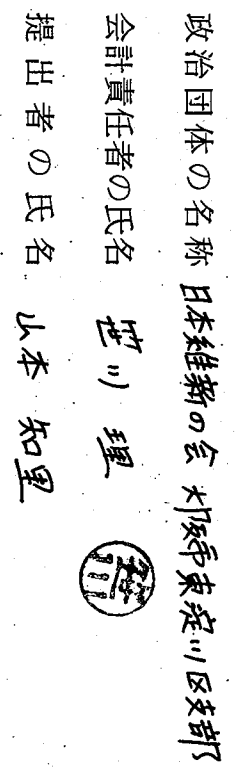 政治団体の名称 日本維新の会 大阪市東淀川区支部
会計責任者の氏名 笹川 理
提出者の氏名 山本 知里